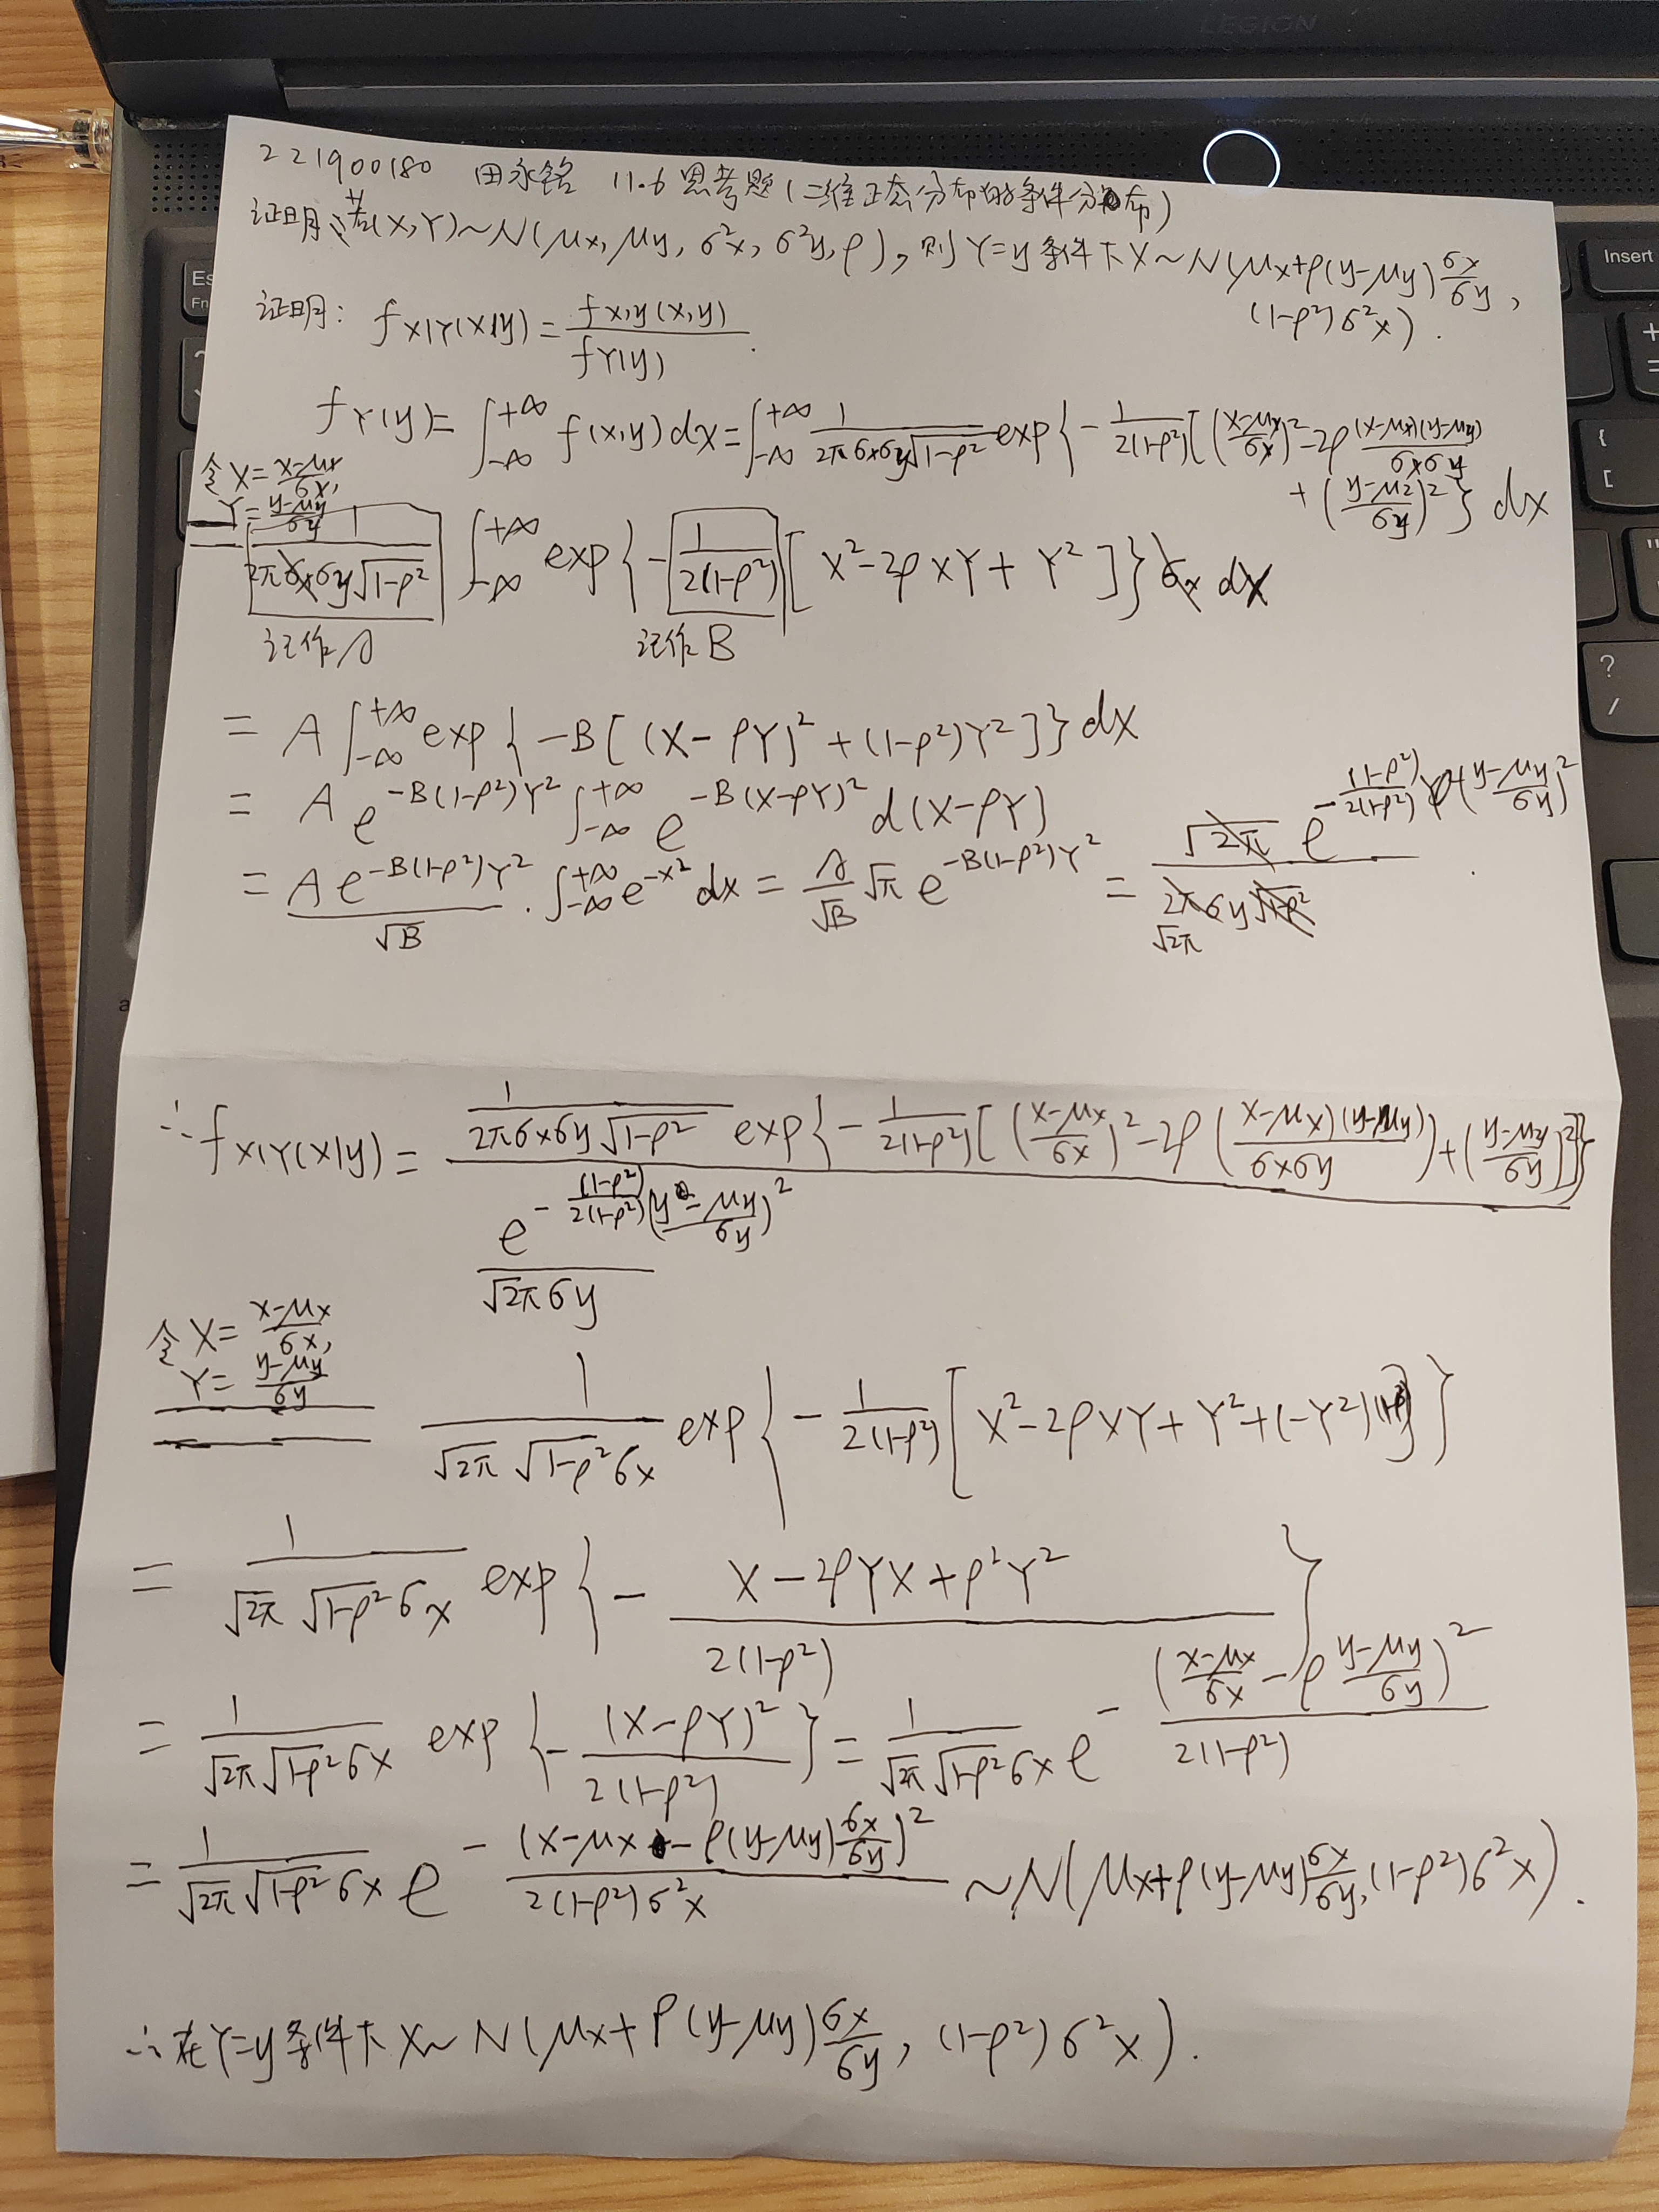 LEGION
Insert
221900180 田永铭 11.6 思考题(二维正态分布的条件分布)
证明:若(X,Y)~N(μx,μy,σ²x,σ²y,ρ),则Y=y条件下X~N(μx+ρ(y-μy)σx/σy,
(1-ρ²)σ²x).
证明: fX|Y(x|y)=fX,Y(x,y)/fY(y).
fY(y)=∫_{-∞}^{+∞} f(x,y)dx=∫_{-∞}^{+∞} 1/(2πσxσy√(1-ρ²)) exp{-1/(2(1-ρ²))[((x-μx)/σx)²-2ρ(x-μx)(y-μy)/(σxσy)
+((y-μy)/σy)²} dx
令X=(x-μx)/σx,
Y=(y-μy)/σy
= 1/(2πσxσy√(1-ρ²)) ∫_{-∞}^{+∞} exp{-1/(2(1-ρ²))[X²-2ρXY+Y²]}σx dX
记作A 记作B
= A∫_{-∞}^{+∞} exp{-B[(X-ρY)²+(1-ρ²)Y²]}dX
= A e^{-B(1-ρ²)Y²} ∫_{-∞}^{+∞} e^{-B(X-ρY)²} d(X-ρY)
= A e^{-B(1-ρ²)Y²}/√B · ∫_{-∞}^{+∞} e^{-x²} dx = A/√B √π e^{-B(1-ρ²)Y²} = √2π e^{-(1-ρ²)/(2(1-ρ²)) ((y-μy)/σy)²}/(2πσy√(1-ρ²)) √2π .
∴fX|Y(x|y)= 1/(2πσxσy√(1-ρ²)) exp{-1/(2(1-ρ²))[((x-μx)/σx)²-2ρ((x-μx)(y-μy)/(σxσy))+((y-μy)/σy)²]}
e^{-(1-ρ²)/(2(1-ρ²)) ((y-μy)/σy)²}
√2πσy
令X=(x-μx)/σx,
Y=(y-μy)/σy
1/(√2π√(1-ρ²)σx) exp{-1/(2(1-ρ²))[X²-2ρXY+Y²+(-Y²)(1-ρ²)]}
= 1/(√2π√(1-ρ²)σx) exp{-(X-2ρYX+ρ²Y²)/(2(1-ρ²))}
= 1/(√2π√(1-ρ²)σx) exp{-(X-ρY)²/(2(1-ρ²))}= 1/(√2π√(1-ρ²)σx) e^{-((x-μx)/σx-ρ(y-μy)/σy)²/(2(1-ρ²))}
= 1/(√2π√(1-ρ²)σx) e^{-(x-μx-ρ(y-μy)σx/σy)²/(2(1-ρ²)σ²x)} ~N(μx+ρ(y-μy)σx/σy,(1-ρ²)σ²x).
∴在Y=y条件下X~N(μx+ρ(y-μy)σx/σy,(1-ρ²)σ²x).